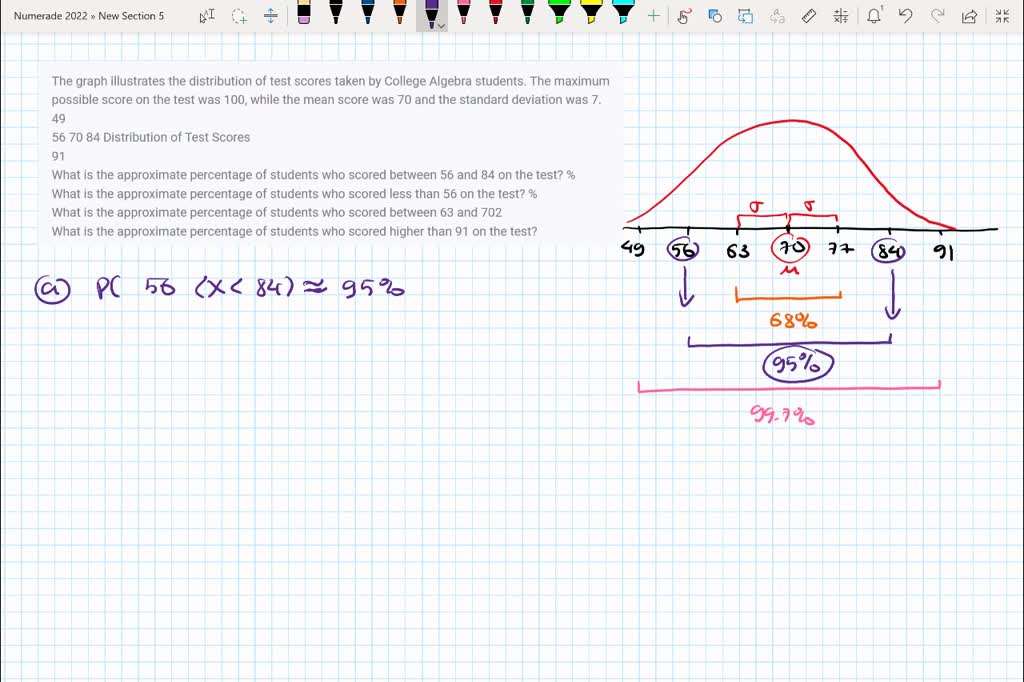 Numerade 2022 » New Section 5
The graph illustrates the distribution of test scores taken by College Algebra students. The maximum
possible score on the test was 100, while the mean score was 70 and the standard deviation was 7.
49
56 70 84 Distribution of Test Scores
91
What is the approximate percentage of students who scored between 56 and 84 on the test? %
What is the approximate percentage of students who scored less than 56 on the test? %
What is the approximate percentage of students who scored between 63 and 702
What is the approximate percentage of students who scored higher than 91 on the test?
σ σ
49 56 63 70 77 84 91
μ
a P( 56 < X < 84 ) ≈ 95%
68%
95%
99.7%